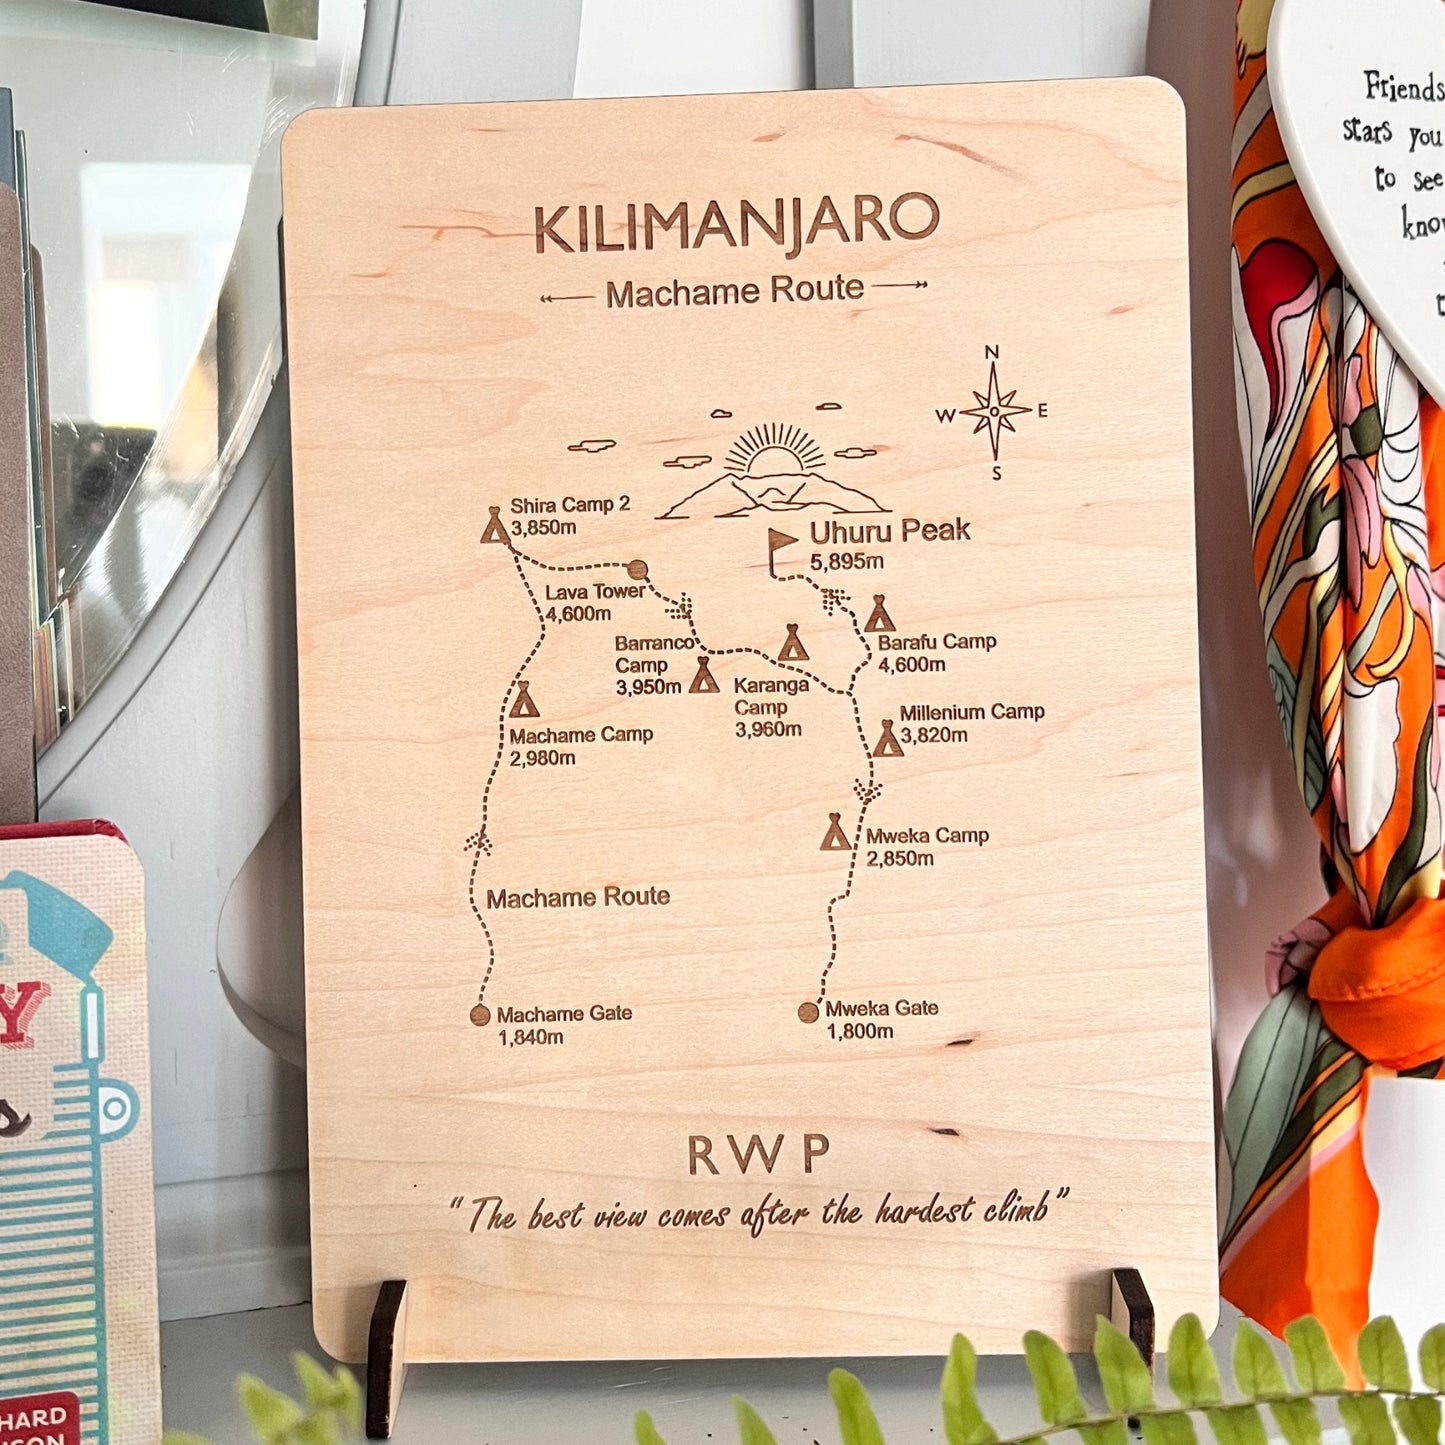 KILIMANJARO
Machame Route
N
W E
S
Shira Camp 2
3,850m
Uhuru Peak
5,895m
Lava Tower
4,600m
Barranco
Camp
3,950m
Barafu Camp
4,600m
Karanga
Camp
3,960m
Machame Camp
2,980m
Millenium Camp
3,820m
Mweka Camp
2,850m
Machame Route
Machame Gate
1,840m
Mweka Gate
1,800m
RWP
"The best view comes after the hardest climb"
Friends
stars you
to see